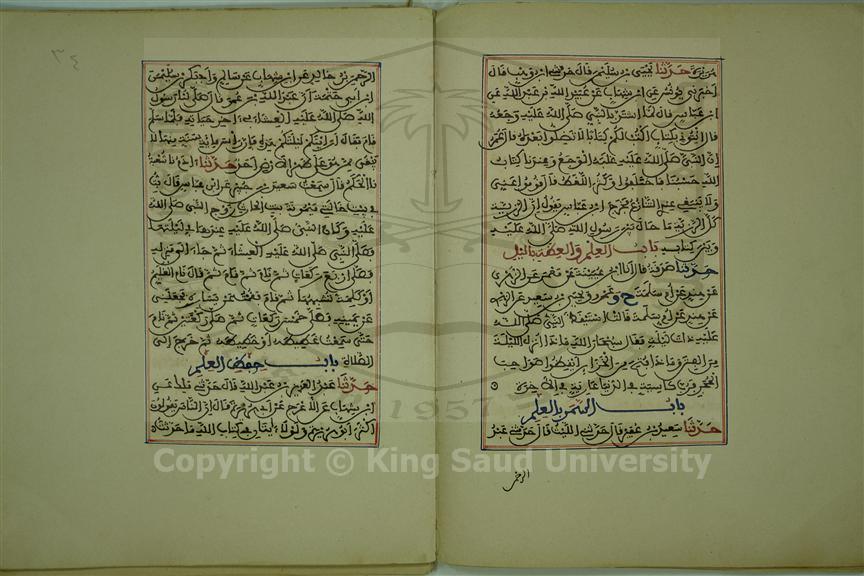 حدثنا يحيى بن سليمن قال حدثني ابن وهب قال
أخبرني يونس عن ابن شهاب عن عبيد الله بن عبد الله عن
ابن عباس قال لما اشتد بالنبي صلى الله عليه وجعه
قال ائتوني بكتاب أكتب لكم كتابا لا تضلوا بعده قال عمر
إن النبي صلى الله عليه غلبه الوجع وعندنا كتاب
الله حسبنا فاختلفوا وكثر اللغط قال قوموا عني
ولا ينبغي عندي التنازع فخرج ابن عباس يقول إن الرزية
كل الرزية ما حال بين رسول الله صلى الله عليه
وبين كتابه باب العلم والعظة بالليل
حدثنا صدقة قال أنا ابن عيينة عن معمر عن الزهري
عن هند عن أم سلمة ح وعمرو ويحيى بن سعيد عن الزهري
عن هند عن أم سلمة قالت استيقظ النبي صلى الله
عليه ذات ليلة فقال سبحان الله ماذا أنزل الليلة
من الفتن وماذا فتح من الخزائن أيقظوا صواحب
الحجر فرب كاسية في الدنيا عارية في الآخرة
باب السمر بالعلم
حدثنا سعيد بن عفير قال حدثني الليث قال حدثني عبد
الرحمن
٣٤
الرحمن بن خالد عن ابن شهاب عن سالم وأبي بكر بن سليمن
ابن أبي حثمة أن عبد الله بن عمر قال صلى لنا رسول
الله صلى الله عليه العشاء في آخر حياته فلما سلم
قام فقال أرأيتكم ليلتكم هذه فإن رأس مائة سنة منها لا
يبقى ممن هو على ظهر الأرض أحد حدثنا آدم نا شعبة
نا الحكم قال سمعت سعيد بن جبير عن ابن عباس قال بت
في بيت خالتي ميمونة بنت الحارث زوج النبي صلى الله
عليه وكان النبي صلى الله عليه عندها في ليلتها
فصلى النبي صلى الله عليه العشاء ثم جاء إلى منزله
فصلى أربع ركعات ثم نام ثم قام ثم قال نام الغليم
أو كلمة تشبهها ثم قام فقمت عن يساره فجعلني
عن يمينه فصلى خمس ركعات ثم صلى ركعتين ثم نام
حتى سمعت غطيطه أو خطيطه ثم خرج إلى
الصلاة باب حفظ العلم
حدثنا عبد العزيز بن عبد الله قال حدثني ملك عن
ابن شهاب عن الأعرج عن أبي هريرة قال إن الناس يقولون
أكثر أبو هريرة ولولا آيتان في كتاب الله ما حدثت
1957
Copyright © King Saud University